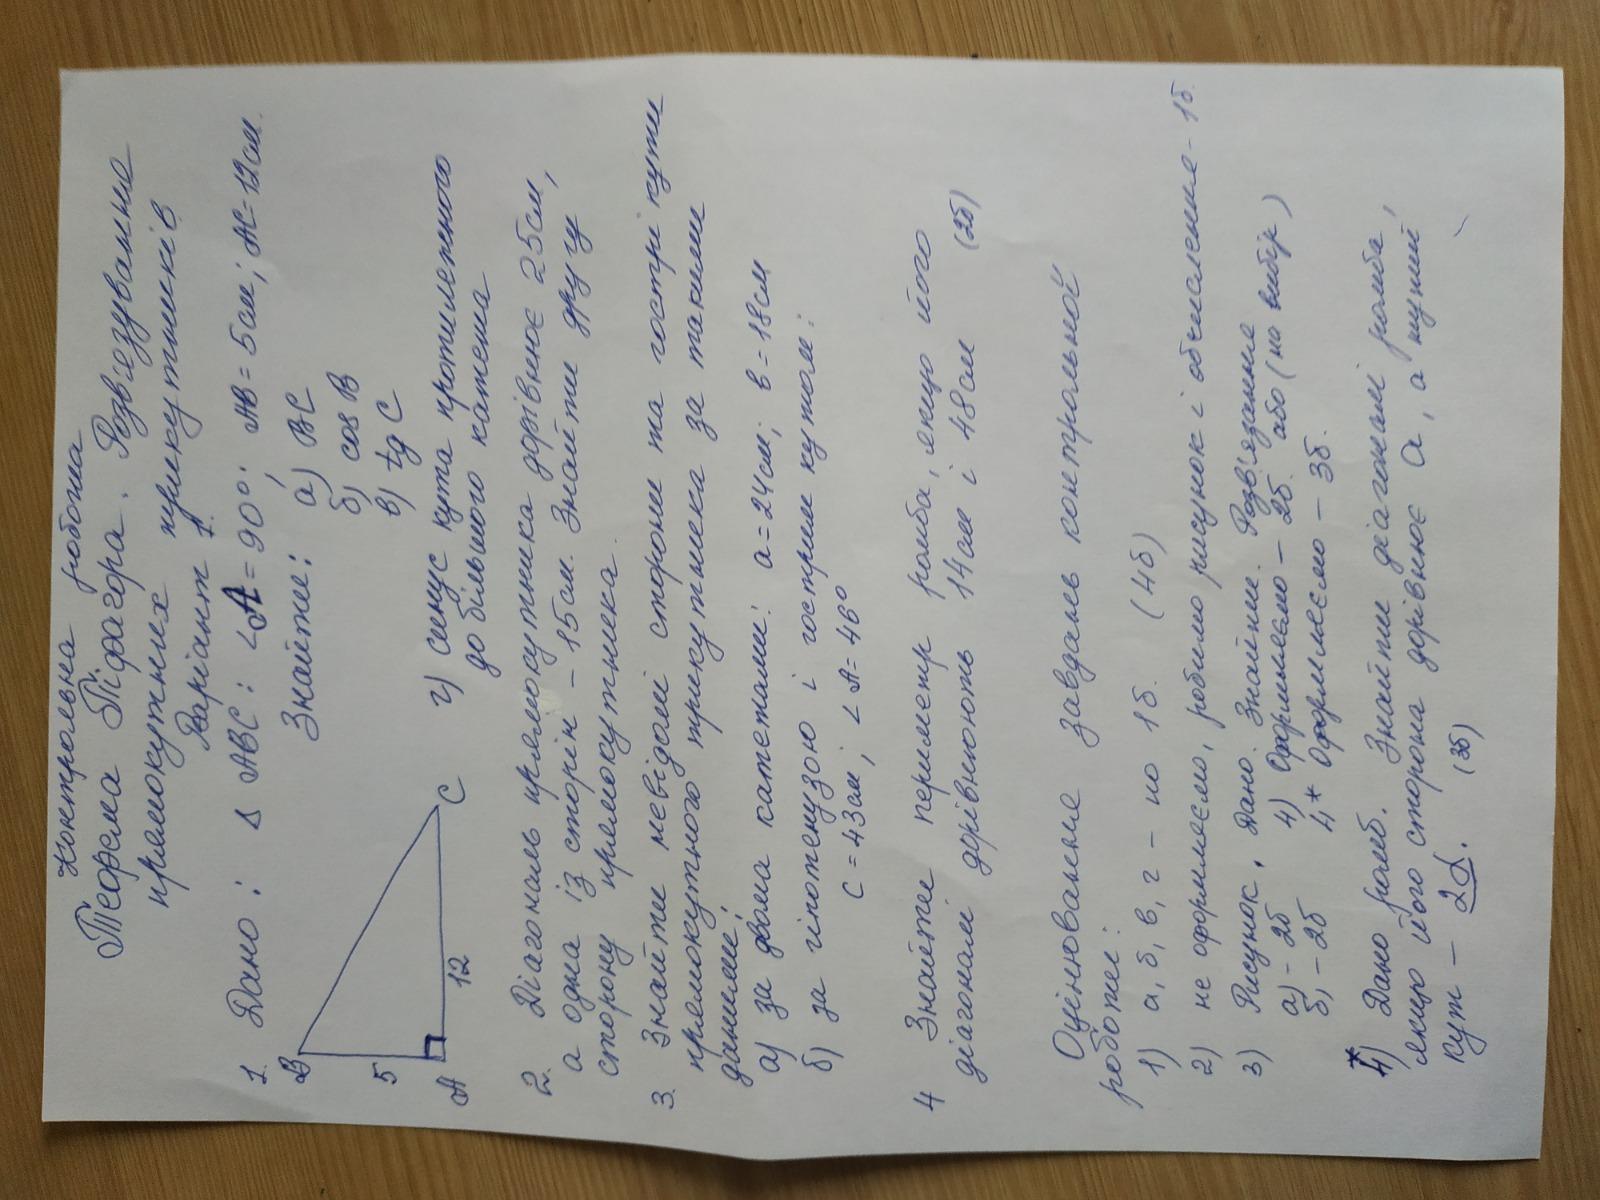 Контрольна робота
Теорема Піфагора. Розв'язування
прямокутних трикутників
Варіант 1.
1. Дано: Δ ABC: ∠A = 90°. AB = 5см; AC = 12см.
Знайти: а) BC
б) cos B
в) tg C
г) синус кута протилежного
до більшого катета
B
5
A
12
C
2. Діагональ прямокутника дорівнює 25см,
а одна із сторін – 15см. Знайти другу
сторону прямокутника.
3. Знайти невідомі сторони та гострі кути
прямокутного трикутника за такими
даними:
а) за двома катетами: a = 24см; в = 18см
б) за гіпотенузою і гострим кутом:
c = 43см; ∠A = 46°
4 Знайти периметр ромба, якщо його
діагоналі дорівнюють 14см і 48см (2б)
Оцінювання завдань контрольної
роботи:
1) а, б, в, г – по 1б. (4б)
2) не оформляємо, робимо рисунок і обчислення - 1б.
3) Рисунок, Дано. Знайти. Розв'язання
а) - 2б 4) Оформляємо – 2б. або (на вибір)
б) - 2б 4* Оформляємо – 3б.
4*) Дано ромб. Знайти діагоналі ромба,
якщо його сторона дорівнює a, а
кут – 2α. (3б)